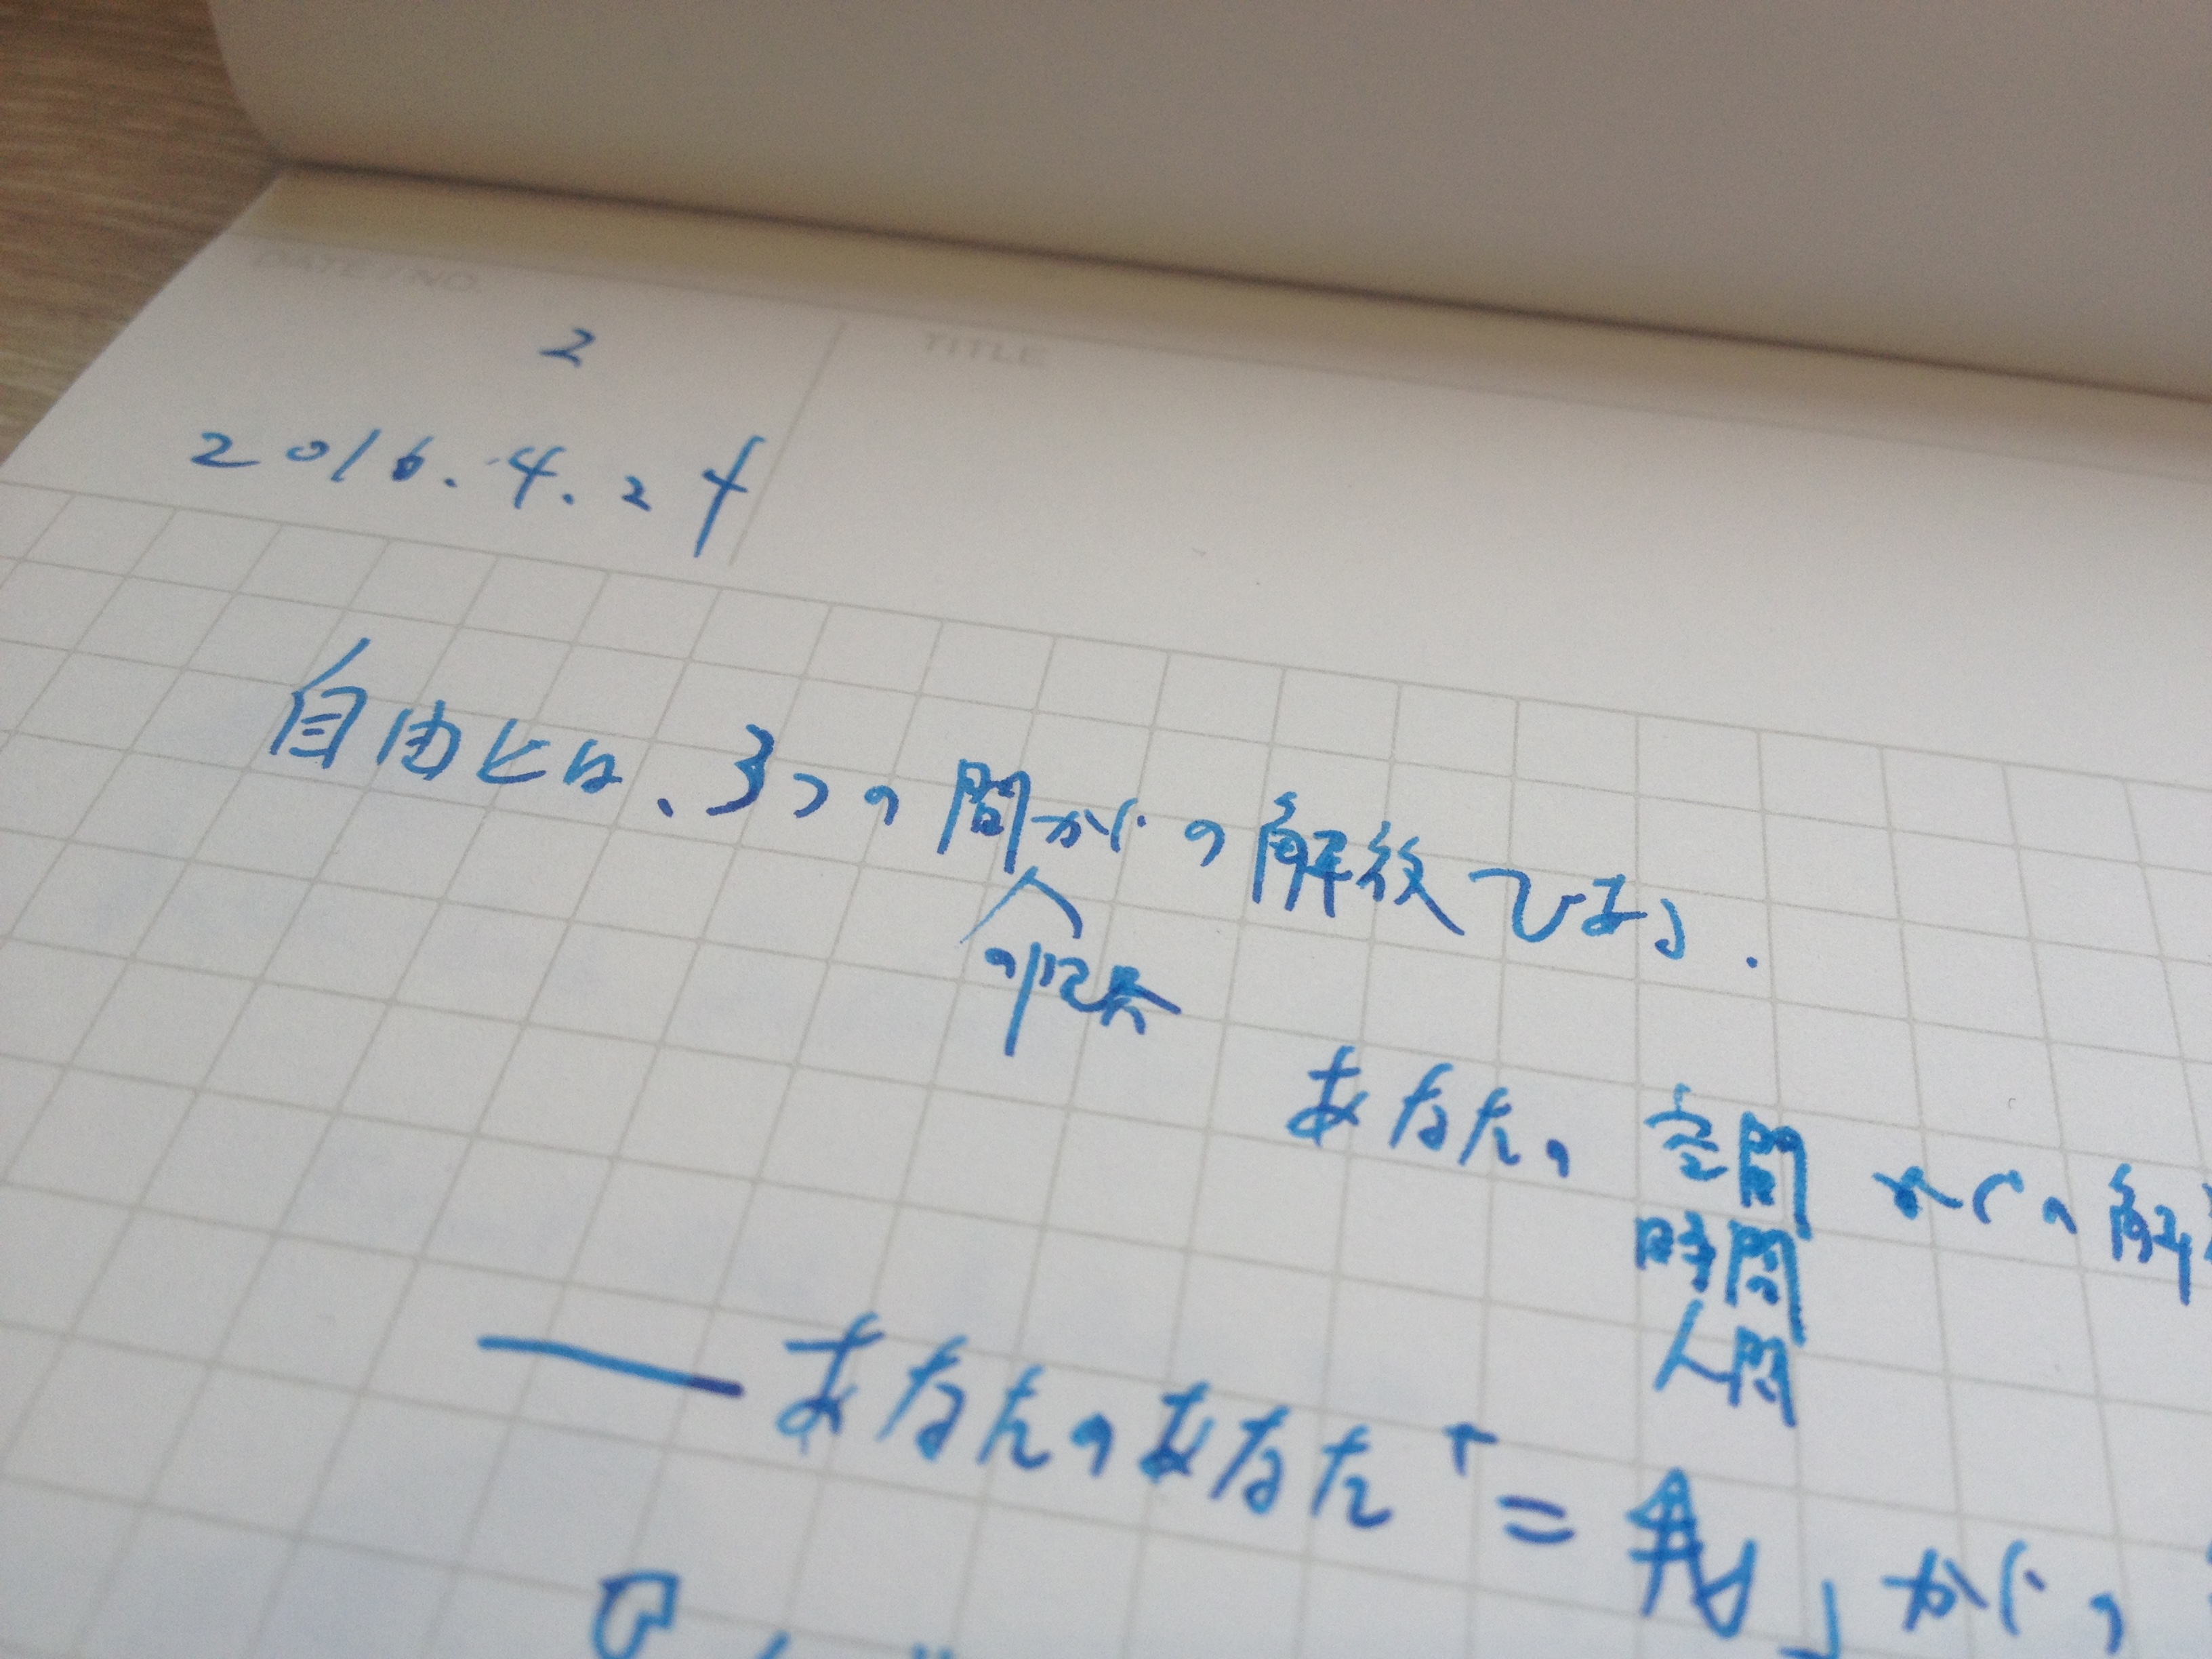 DATE / NO.
TITLE
2
2016.4.24
自由とは、3つの間からの解放である.
あなたの 空間 からの解
時間
人間
あなたのあなた
= 私」からの